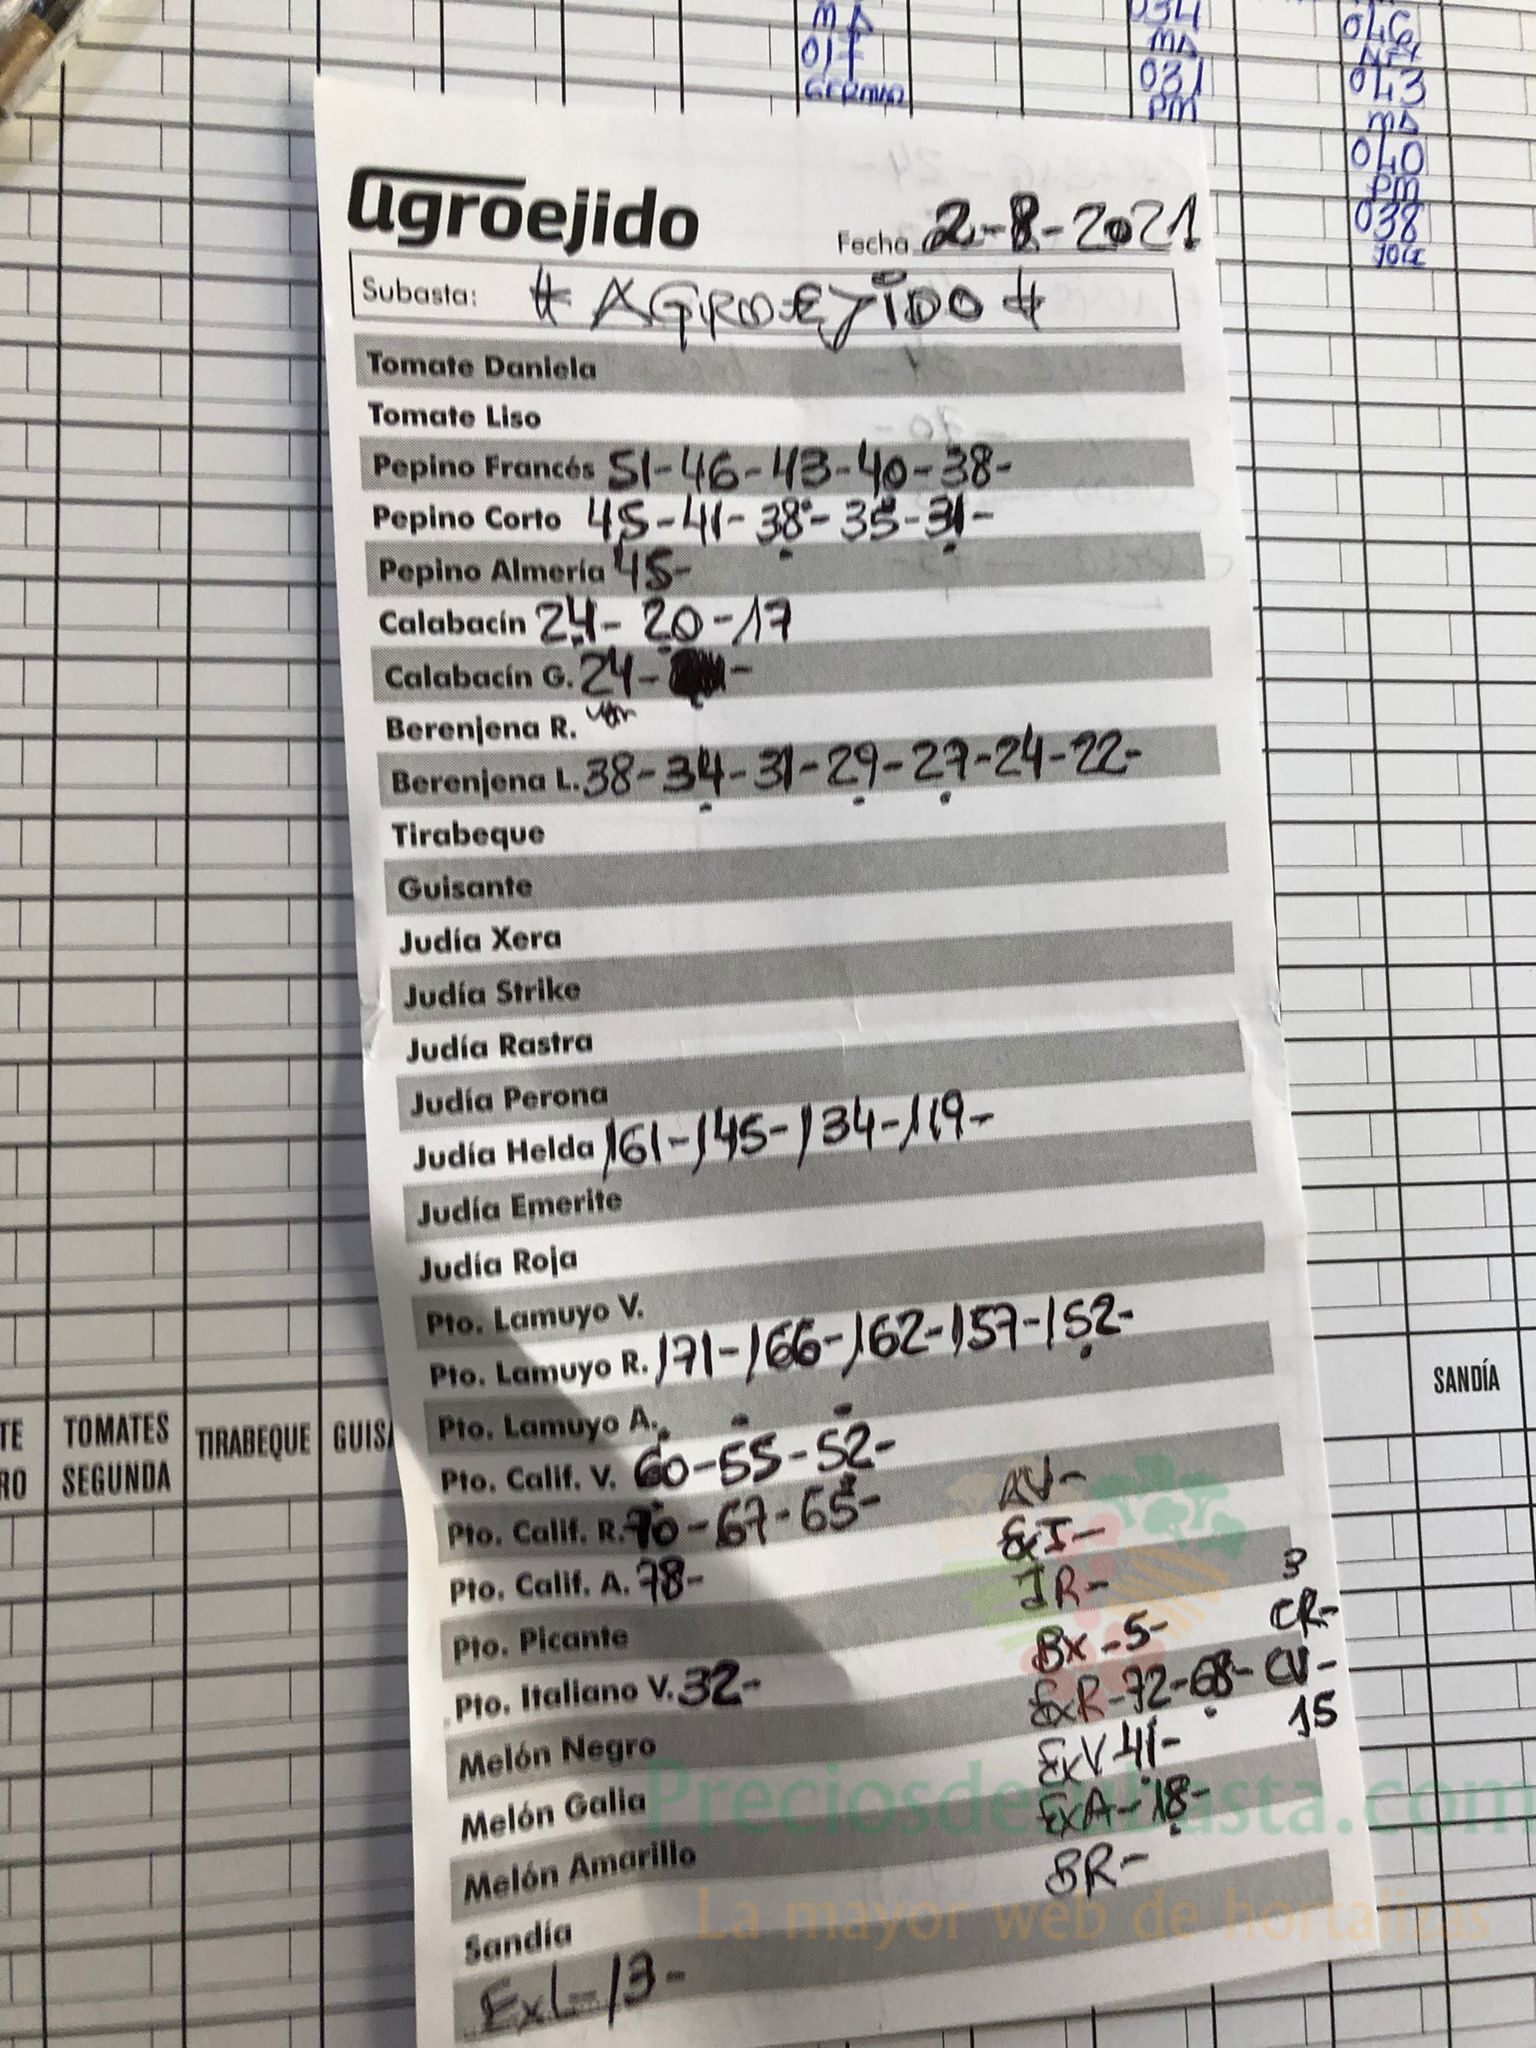 MA
017
GERMAN
034
MA
031
PM
046
043
MA
040
PM
038
agroejido
Fecha 2-8-2021
Subasta: # AGROEJIDO #
Tomate Daniela
Tomate Liso
Pepino Francés 51-46-43-40-38-
Pepino Corto 45-41-38-35-31-
Pepino Almería 45-
Calabacín 24-20-17
Calabacín G. 24- -
Berenjena R.
Berenjena L. 38-34-31-29-27-24-22-
Tirabeque
Guisante
Judía Xera
Judía Strike
Judía Rastra
Judía Perona
Judía Helda 161-145-134-119-
Judía Emerite
Judía Roja
Pto. Lamuyo V.
Pto. Lamuyo R. 171-166-162-157-152-
Pto. Lamuyo A.
Pto. Calif. V. 60-55-52-
Pto. Calif. R. 70-67-65-
Pto. Calif. A. 78-
Pto. Picante
Pto. Italiano V. 32-
Melón Negro
Melón Galia
Melón Amarillo
Sandía
ExL-13-
AV-
ExI-
JR-
Bx-5-
ExR-72-68-
ExV 41-
ExA-18-
BR-
3
CR-
CV-
15
TE
RO
TOMATES
SEGUNDA
TIRABEQUE
GUISA
SANDÍA
Preciosdesubasta.com
La mayor web de hortalizas